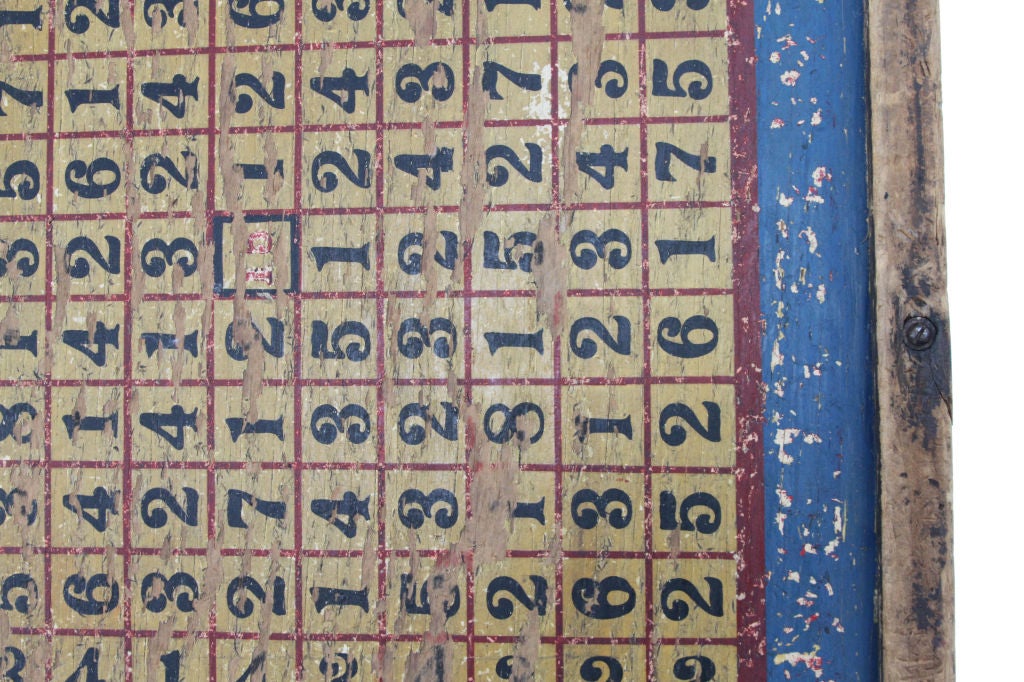 3 5 3 8 1 3 5 7
4 6 4 1 4 2 6 1 2
1 3 2 4 1 3 2 4
2 7 1 2 10 1 2
1 4 3 5 1 2 4 3
5 3 2 3 2 4 3
2 2 1 8 1 5 2 7 1
6 3 1 2 3 4 3
2 5 2 6 1 7 5